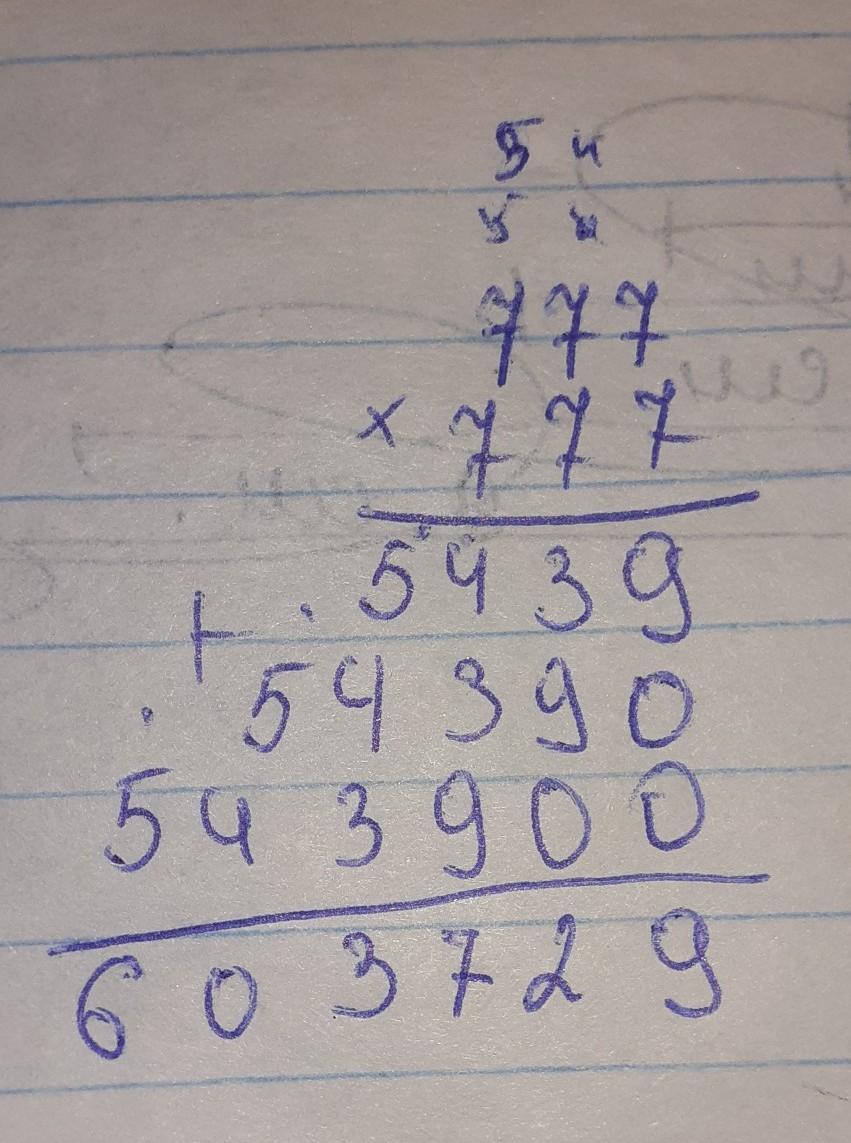 5 4
5 4
777
× 777
5439
+ 54390
543900
603729